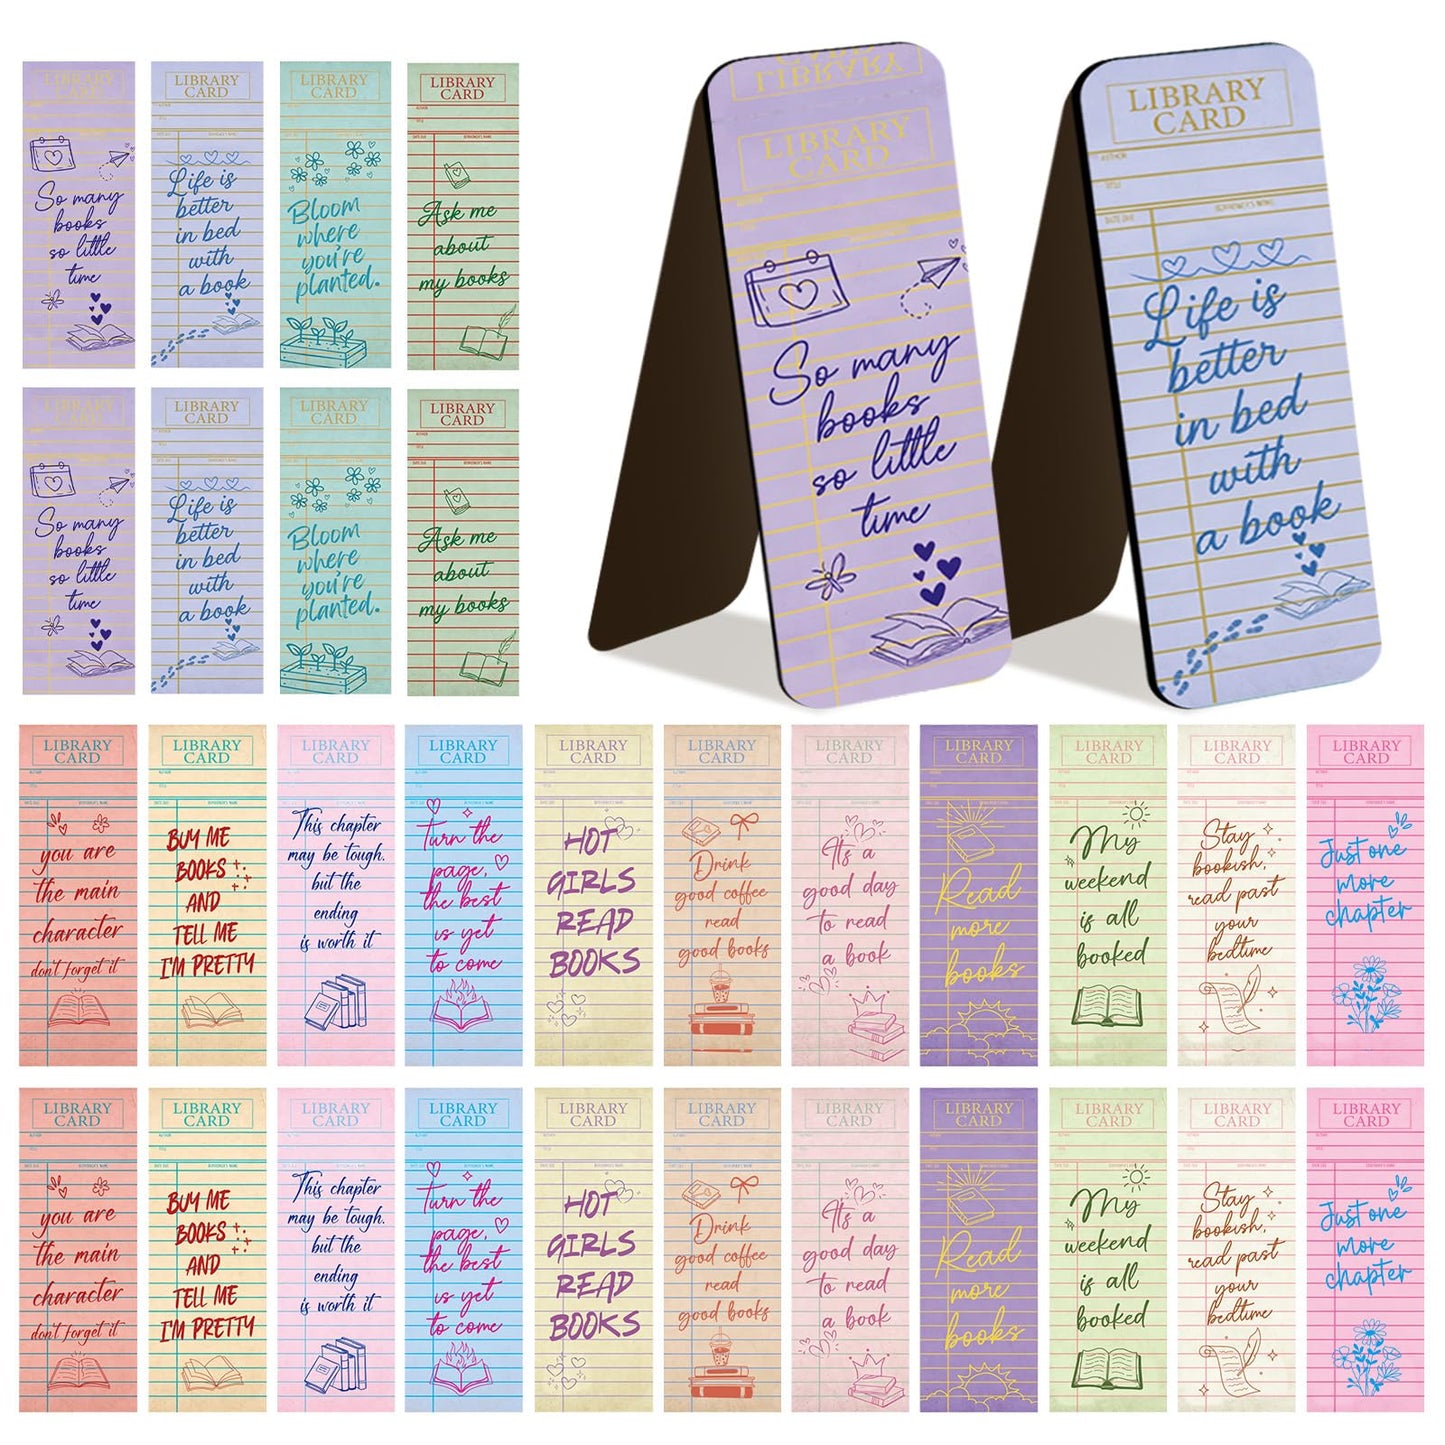 LIBRARY
CARD
So many
books
so little
time
LIBRARY
CARD
AUTHOR
TITLE
DATE DUE
BORROWER'S NAME
Life is
better
in bed
with
a book
LIBRARY
CARD
Bloom
where
you're
planted.
LIBRARY
CARD
AUTHOR
TITLE
DATE DUE
BORROWER'S NAME
Ask me
about
my books
LIBRARY
LIBRARY
CARD
So many
books
so little
time
LIBRARY
CARD
AUTHOR
TITLE
DATE DUE
BORROWER'S NAME
Life is
better
in bed
with
a book
LIBRARY
CARD
So many
books
so little
time
LIBRARY
CARD
Life is
better
in bed
with
a book
LIBRARY
CARD
Bloom
where
you're
planted.
LIBRARY
CARD
Ask me
about
my books
LIBRARY
CARD
you are
the main
character
don't forget it
LIBRARY
CARD
BUY ME
BOOKS
AND
TELL ME
I'M PRETTY
LIBRARY
CARD
This chapter
may be tough.
but the
ending
is worth it
LIBRARY
CARD
Turn the
page,
the best
is yet
to come
LIBRARY
CARD
HOT
GIRLS
READ
BOOKS
LIBRARY
CARD
Drink
good coffee
read
good books
LIBRARY
CARD
It's a
good day
to read
a book
LIBRARY
CARD
Read
more
books
LIBRARY
CARD
My
weekend
is all
booked
LIBRARY
CARD
Stay
bookish,
read past
your
bedtime
LIBRARY
CARD
Just one
more
chapter
LIBRARY
CARD
you are
the main
character
don't forget it
LIBRARY
CARD
BUY ME
BOOKS
AND
TELL ME
I'M PRETTY
LIBRARY
CARD
This chapter
may be tough.
but the
ending
is worth it
LIBRARY
CARD
Turn the
page,
the best
is yet
to come
LIBRARY
CARD
HOT
GIRLS
READ
BOOKS
LIBRARY
CARD
Drink
good coffee
read
good books
LIBRARY
CARD
It's a
good day
to read
a book
LIBRARY
CARD
Read
more
books
LIBRARY
CARD
My
weekend
is all
booked
LIBRARY
CARD
Stay
bookish,
read past
your
bedtime
LIBRARY
CARD
Just one
more
chapter